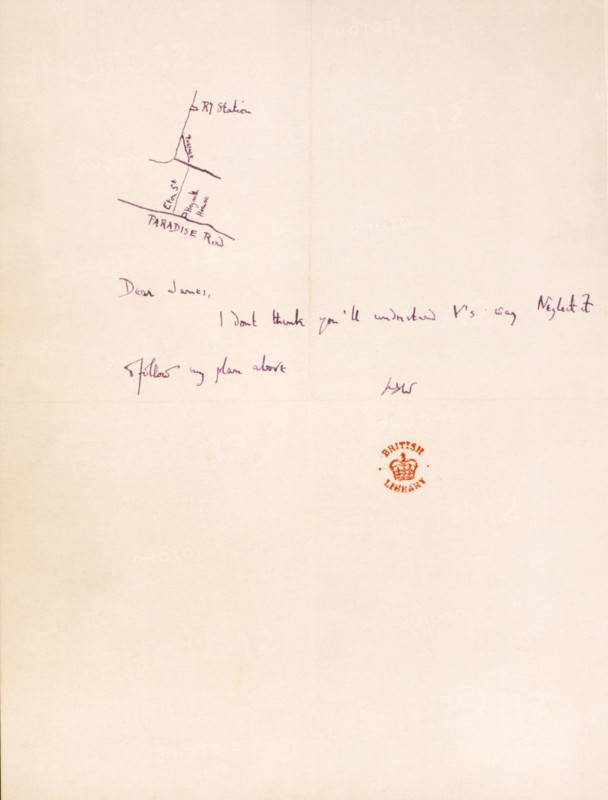 Ry Station
Eton St
Hogarth
House
PARADISE Road
Dear James,
I dont think you'll understand V's way Neglect it
& follow my plan above
LSW
BRITISH
LIBRARY